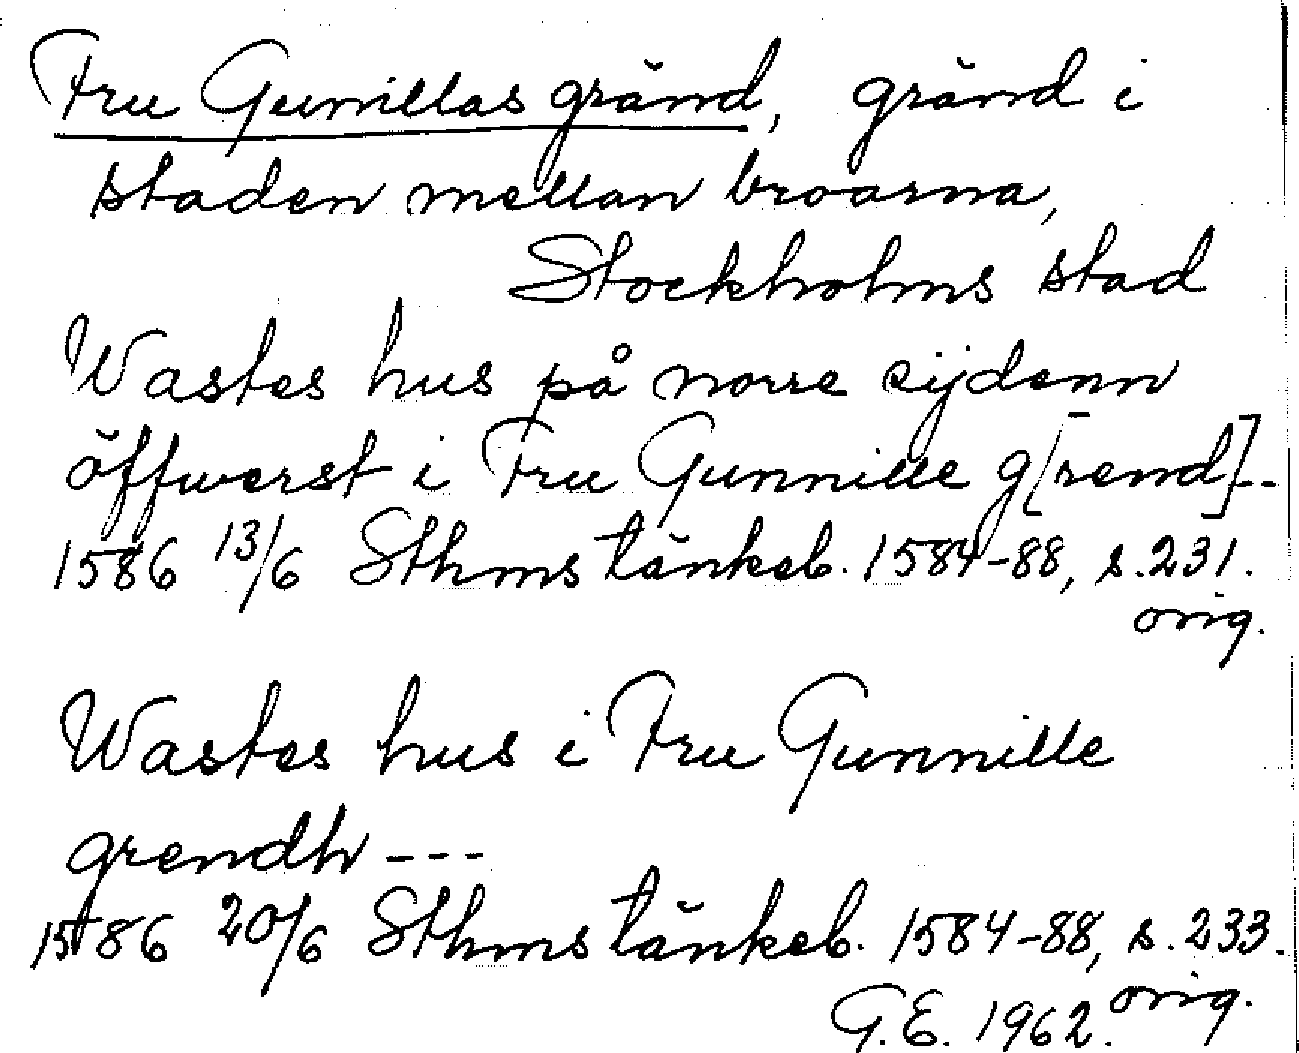 Fru Gunillas gränd, gränd i
staden mellan broarna,
Stockholms stad
Wastes hus på norre sijdenn
öffwerst i Fru Gunnille g[rend]--
1586 13/6 Sthms tänkeb. 1584-88, s. 231.
orig.
Wastes hus i Fru Gunnille
grendh ---
1586 20/6 Sthms tänkeb. 1584-88, s. 233.
orig.
G.E. 1962.